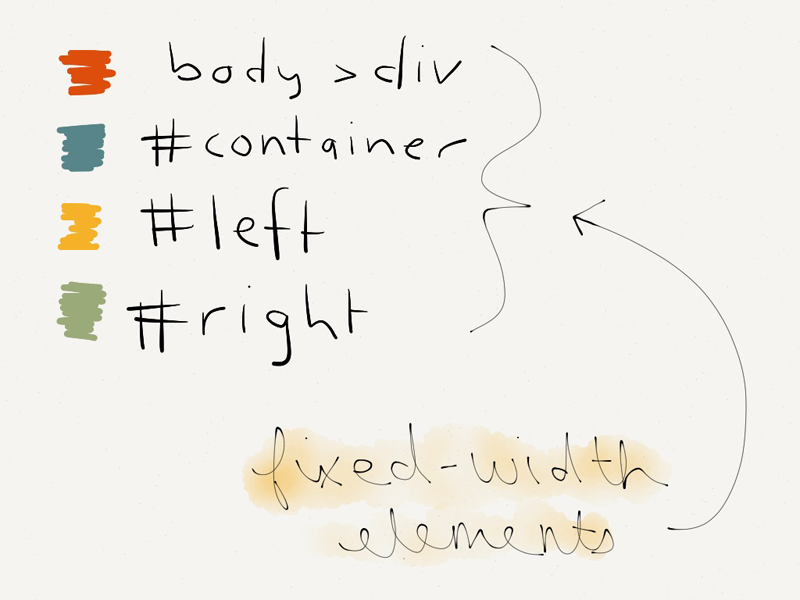 body > div
#container
#left
#right
fixed-width
elements